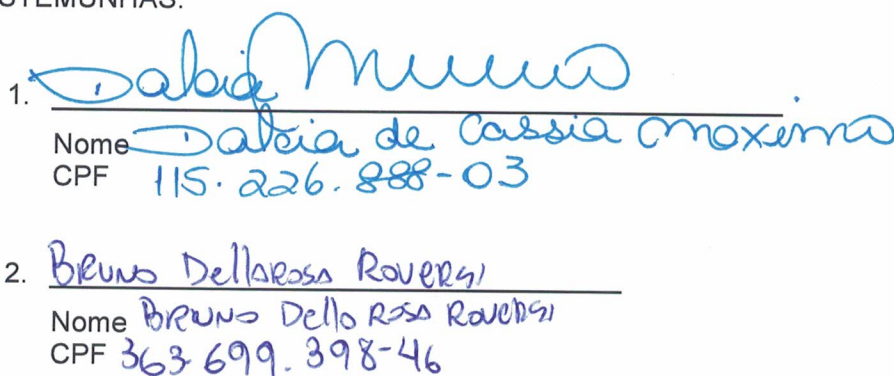 STEMUNHAS:
1. Dalcia
Nome Dalcia de Cassia Maximo
CPF 115.226.888-03
2. Bruno Dellarosa Roversi
Nome Bruno Della Rosa Roversi
CPF 363.699.398-46